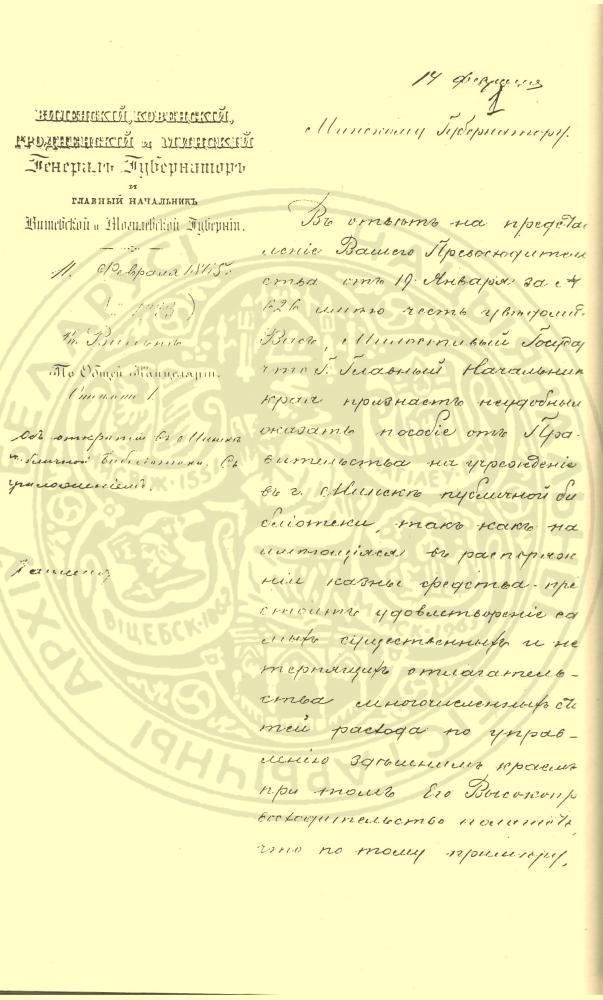 14 февраля
1
Минскому Губернатору.
ВИЛЕНСКІЙ, КОВЕНСКІЙ,
ГРОДНЕНСКІЙ и МИНСКІЙ
Генералъ Губернаторъ
и
ГЛАВНЫЙ НАЧАЛЬНИКЪ
Витебской и Могилевской Губерніи.
11 Февраля
г. Вильна
По Общей Канцеляріи.
Объ открытіи въ г. Минскѣ
публичной библіотеки. Съ
приложеніемъ.
Въ отвѣтъ на представ
леніе Вашего Превосходитель
ства отъ 19 Января за №
626 имѣю честь увѣдомит
Васъ, Милостивый Госуда
что Г. Главный Начальник
края признаетъ неудобным
оказать пособіе отъ Пра-
вительства на учрежденіе
въ г. Минскѣ публичной би
бліотеки, такъ какъ на
имѣющіяся въ распоряж
ніи казны средства пре
стоитъ удовлетвореніе са
мыхъ существенныхъ и не
терпящихъ отлагатель-
ства многочисленныхъ ст
тей расхода по управ-
ленію здѣшнимъ краемъ
при томъ Его Высокопр
восходительство полагаетъ,
что по тому примѣру,
БЕЛАРУСІ
ВІЦЕБСК